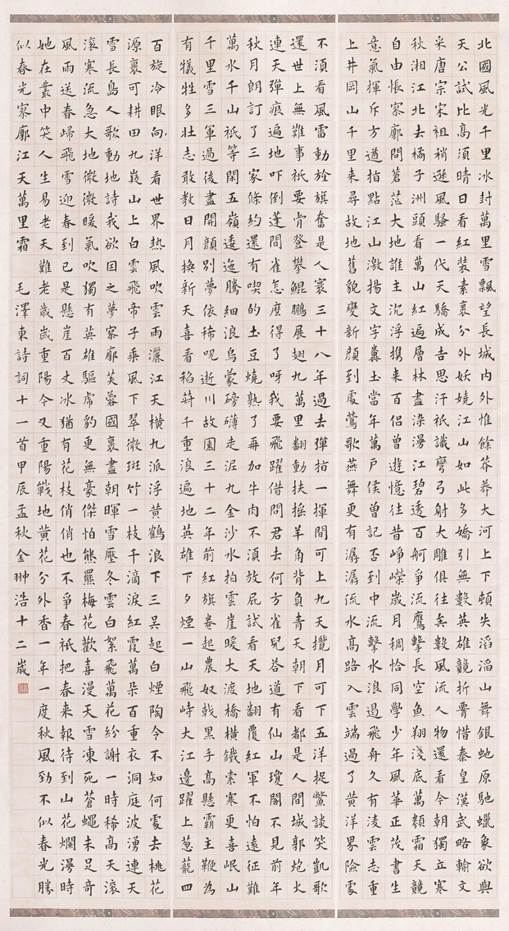 北國風光千里冰封萬里雪飄望長城內外惟餘莽莽大河上下頓失滔滔山舞銀蛇原馳蠟象欲與
天公試比高須晴日看紅裝素裹分外妖嬈江山如此多嬌引無數英雄競折腰惜秦皇漢武略輸文
采唐宗宋祖稍遜風騷一代天驕成吉思汗祇識彎弓射大雕俱往矣數風流人物還看今朝獨立寒
秋湘江北去橘子洲頭看萬山紅遍層林盡染漫江碧透百舸爭流鷹擊長空魚翔淺底萬類霜天競
自由悵寥廓問蒼茫大地誰主沉浮攜來百侶曾遊憶往昔崢嶸歲月稠恰同學少年風華正茂書生
意氣揮斥方遒指點江山激揚文字糞土當年萬戶侯曾記否到中流擊水浪遏飛舟久有凌雲志重
上井岡山千里來尋故地舊貌變新顏到處鶯歌燕舞更有潺潺流水高路入雲端過了黃洋界險處
不須看風雷動旌旗奮是人寰三十八年過去彈指一揮間可上九天攬月可下五洋捉鱉談笑凱歌
還世上無難事祇要肯登攀鯤鵬展翅九萬里翻動扶搖羊角背負青天朝下看都是人間城郭炮火
連天彈痕遍地吓倒蓬間雀怎麼得了哎呀我要飛躍借問君去何方雀兒答道有仙山瓊閣不見前年
秋月朗訂了三家條約還有喫的土豆燒熟了再加牛肉不須放屁試看天地翻覆紅軍不怕遠征難
萬水千山祇等閑五嶺逶迤騰細浪烏蒙磅礴走泥丸金沙水拍雲崖暖大渡橋橫鐵索寒更喜岷山
千里雪三軍過後盡開顏別夢依稀咒逝川故園三十二年前紅旗卷起農奴戟黑手高懸霸主鞭為
有犧牲多壯志敢教日月換新天喜看稻菽千重浪遍地英雄下夕煙一山飛峙大江邊躍上蔥蘢四
百旋冷眼向洋看世界熱風吹雲雨灑江天橫九派浮黃鶴浪下三吳起白煙陶令不知何處去桃花
源裏可耕田九嶷山上白雲飛帝子乘風下翠微斑竹一枝千滴淚紅霞萬朵百重衣洞庭波湧連天
雪長島人歌動地詩我欲因之夢寥廓芙蓉國裏盡朝暉雪壓冬雲白絮飛萬花紛謝一時稀高天滾
滾寒流急大地微微暖氣吹獨有英雄驅虎豹更無豪傑怕熊羆梅花歡喜漫天雪凍死蒼蠅未足奇
風雨送春歸飛雪迎春到已是懸崖百丈冰猶有花枝俏俏也不爭春祇把春來報待到山花爛漫時
她在叢中笑人生易老天難老歲歲重陽今又重陽戰地黃花分外香一年一度秋風勁不似春光勝
似春光寥廓江天萬里霜 毛澤東詩詞十一首甲辰孟秋金翀浩十二歲